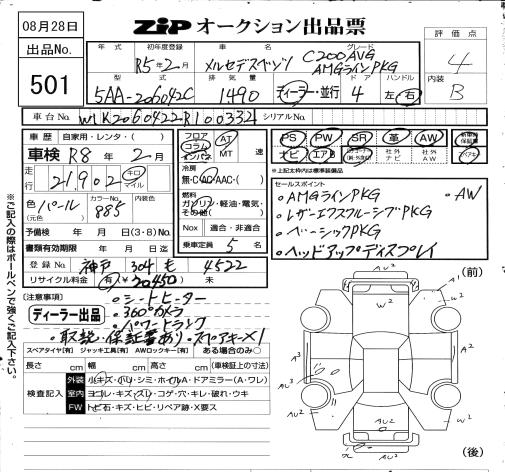 08月28日
ZiP オークション出品票
評価点
4
内装
B
出品No.
501
年式
初年度登録
R5年2月
車名
メルセデスベンツ
グレード
C200AVG
AMGラインPKG
型式
5AA-206042C
排気量
1490
ディーラー・並行
ドア
4
ハンドル
左・右
車台No.
W1K2060422-R100334
シリアルNo.
車歴
自家用・レンタ( )
車検 R8年2月
走行
21,902
キロ
マイル
色
(元色)
パール
カラーNo.
885
内装色
予備検 年 月 日(3・8)No.
書類有効期限 年 月 日迄
登録No. 神戸 304 も 4522
リサイクル料金 有(¥20450) 未
フロア
コラム
インパネ
AT
MT
速
冷房
無・C・AC・AAC・( )
燃料
ガソリン・軽油・電気・
その他( )
Nox 適合・非適合
乗車定員 5 名
PS PW SR 革 AW
ナビ エアB
社外
ナビ
社外
AW
*上記太枠内は標準装備品
セールスポイント
・AMGラインPKG
・AW
・レザーエクスクルーシブPKG
・ベーシックPKG
・ヘッドアップディスプレイ
※ご記入の際はボールペンで強くご記入下さい。
[注意事項]
ディーラー出品
・シートヒーター
・360°カメラ
・パワートランク
・取説・保証書あり・スペアキー×1
スペアタイヤ[有] ジャッキ工具[有] AWロックキー[有] ある場合のみ○
長さ cm 幅 cm 高さ cm (車検証上の寸法)
検査記入
外装 小キズ・ハリ・シミ・ホイルA・ドアミラー(A・ワレ)
室内 ヨゴレ・キズ・スレ・コゲ・穴・キレ・破れ・ウキ
FW トビ石・キズ・ヒビ・リペア跡・X要ス
(前)
(後)
AU2
W2
A1
W2
U2
A3
A2
AU3
AU2
W2
W2
AU2